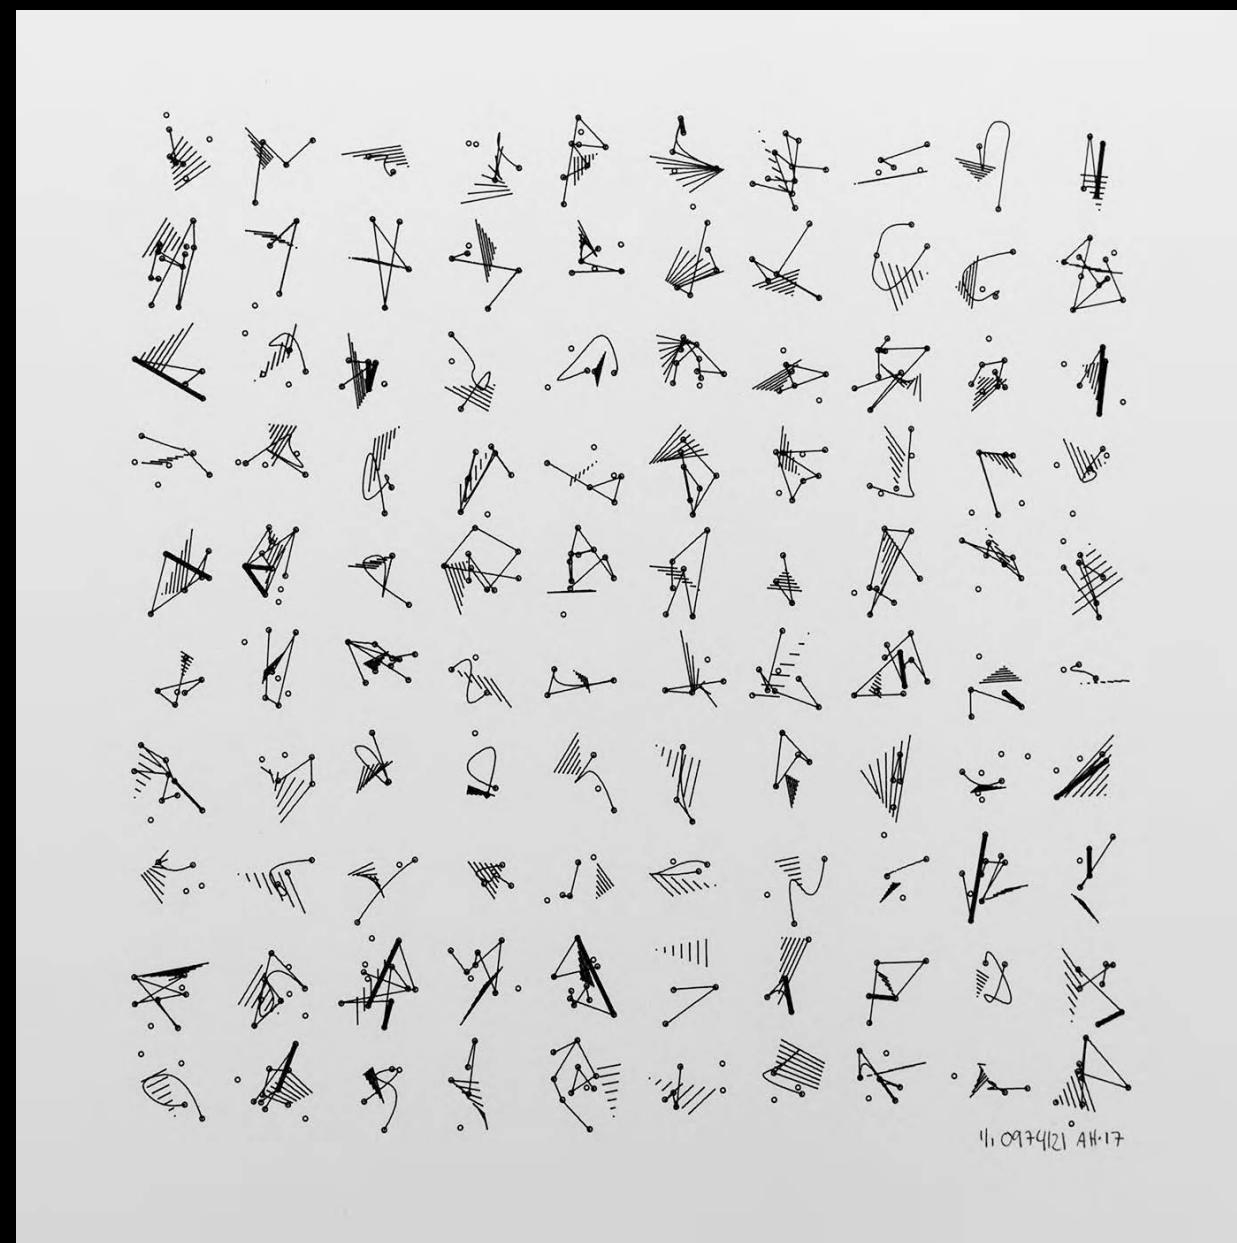 1/1 0974121 AH·17